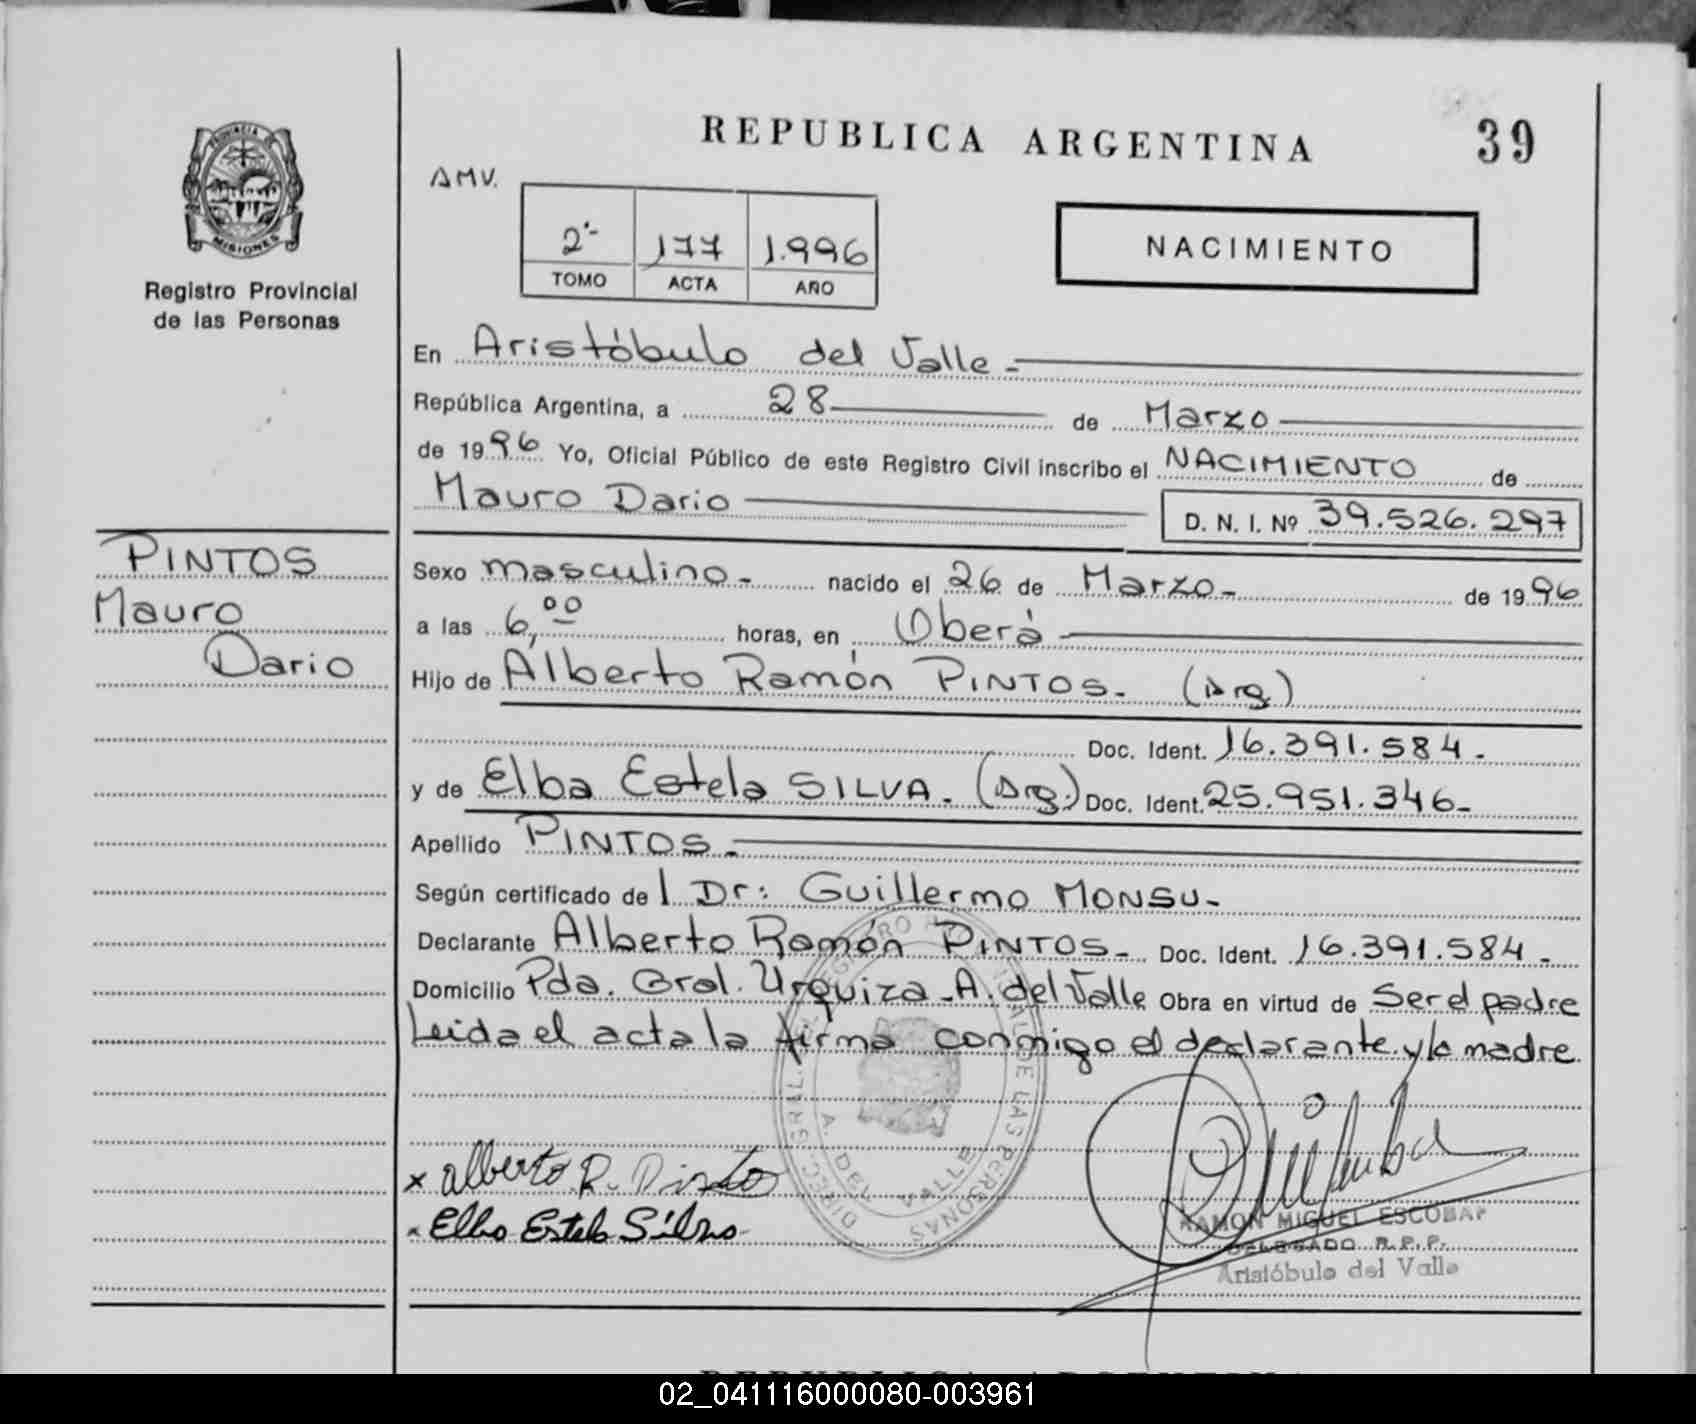 REPUBLICA ARGENTINA
39
PROVINCIA
MISIONES
Registro Provincial
de las Personas
AMV.
2º- 177 1.996
TOMO ACTA AÑO
NACIMIENTO
En Aristóbulo del Valle.-
República Argentina, a 28 de Marzo
de 1996 Yo, Oficial Público de este Registro Civil inscribo el NACIMIENTO de
Mauro Dario
D. N. I. Nº 39.526.297
PINTOS
Mauro
Dario
Sexo masculino.- nacido el 26 de Marzo.- de 1996
a las 6,00 horas, en Oberá
Hijo de Alberto Ramón PINTOS.- (Arg)
Doc. Ident. 16.391.584.-
y de Elba Estela SILVA.- (Arg.) Doc. Ident. 25.951.346.-
Apellido PINTOS.-
Según certificado de l Dr: Guillermo MONSU.-
Declarante Alberto Ramón PINTOS.- Doc. Ident. 16.391.584.-
Domicilio Pda. Gral. Urquiza - A. del Valle Obra en virtud de Ser el padre
Leida el acta la firma conmigo el declarante y la madre.
x alberto R. Pinto
x Elba Estela Silva
A. DEL VALLE
DE LAS PERSONAS
RAMON MIGUEL ESCOBAR
DELEGADO R.P.P.
Aristóbulo del Valle
REPUBLICA ARGENTINA
02_041116000080-003961